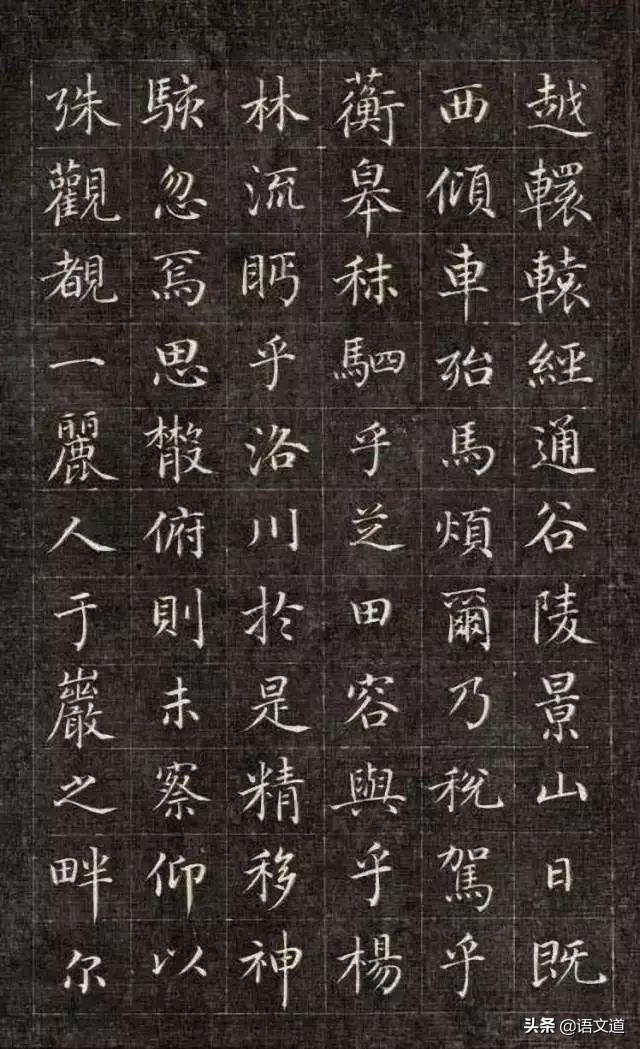 越轘轅經通谷陵景山日既
西傾車殆馬煩爾乃稅駕乎
蘅皋秣駟乎芝田容與乎楊
林流眄乎洛川於是精移神
駭忽焉思散俯則未察仰以
殊觀覩一麗人于巖之畔尔
头条 @语文道